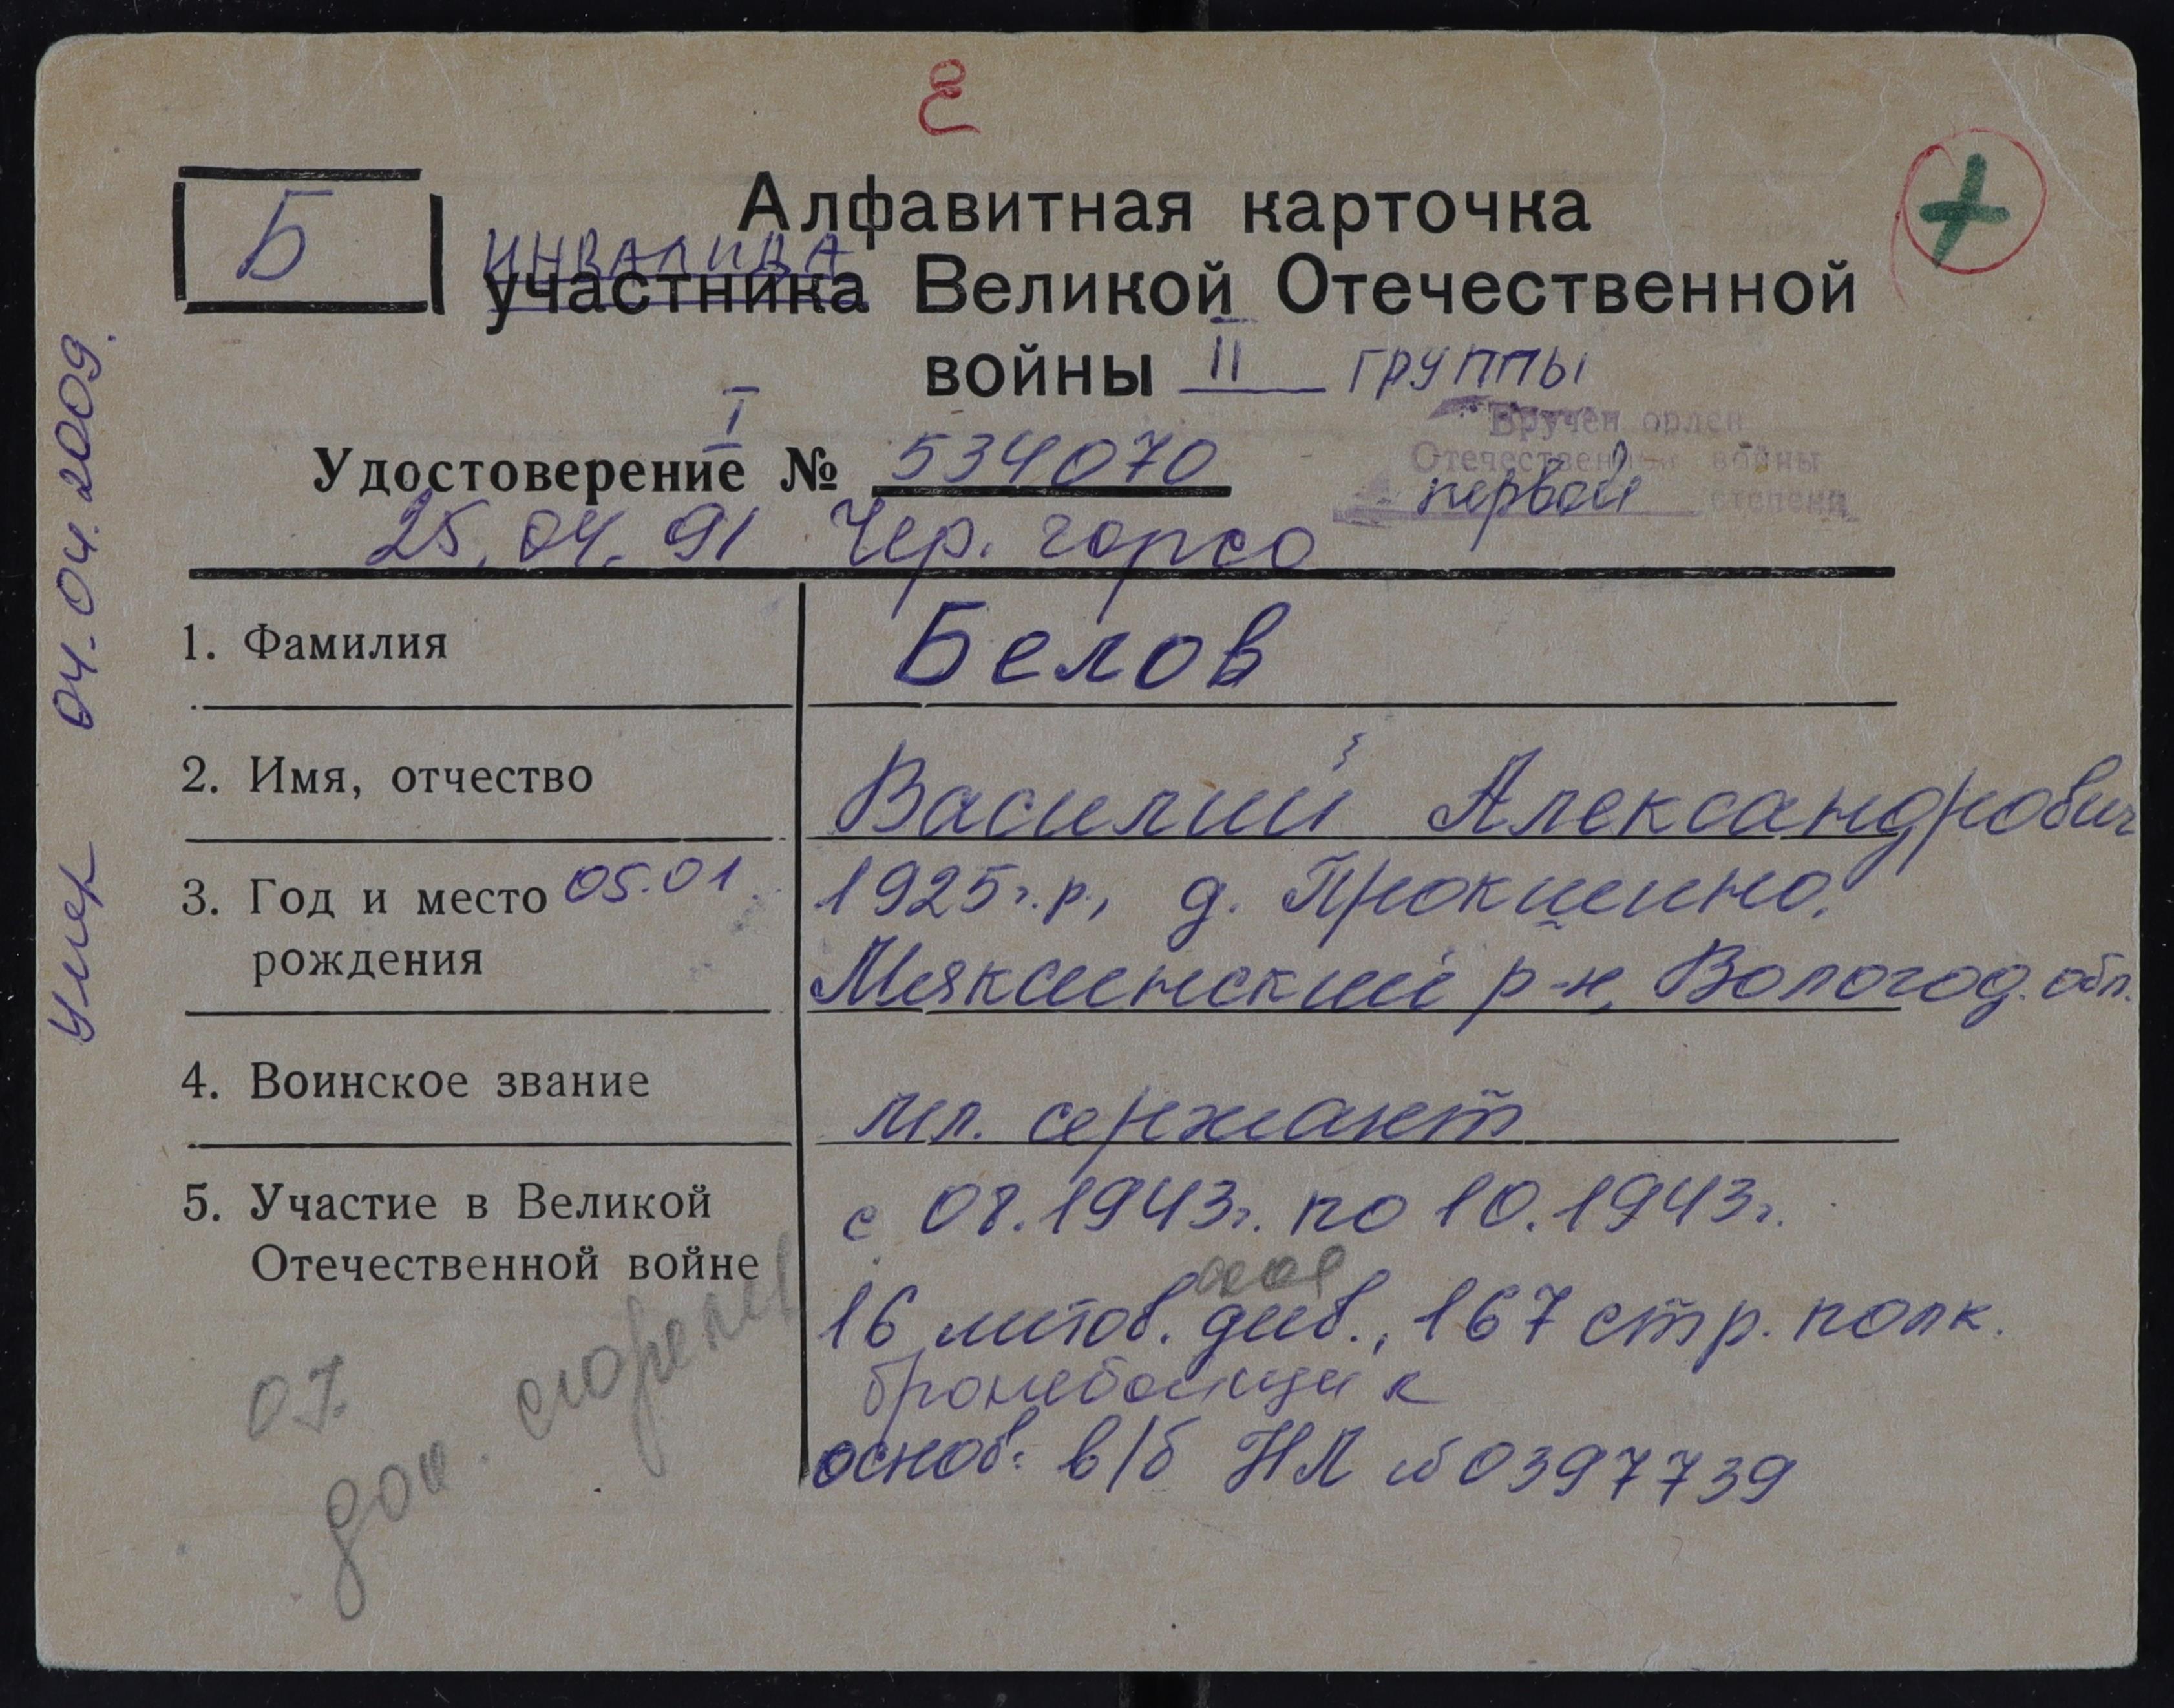 Б
Алфавитная карточка
ИНВАЛИДА
участника Великой Отечественной
войны II группы
Вручен орден
Отечественной войны
первой степени
I
Удостоверение № 534070
25.04.91 Чер. горсо
1. Фамилия Белов
2. Имя, отчество Василий Александрович
3. Год и место 05.01 1925г.р., д. Прокшино,
рождения Мяксинский р-н, Вологод. обл.
4. Воинское звание мл. сержант
5. Участие в Великой с 08.1943г. по 10.1943г.
Отечественной войне
16 литов. див., 167 стр. полк.
бронебойщик
основ: в/б НЛ №0397739
07.
док. сгорели
Умер 04.04.2009.